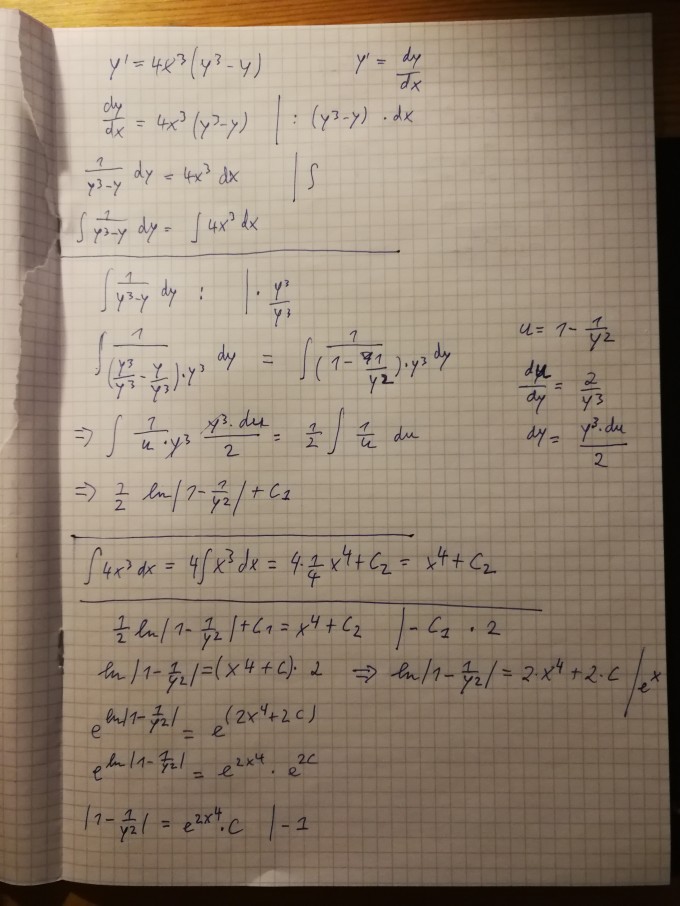 y' = 4x³(y³-y)    y' = dy/dx
dy/dx = 4x³(y³-y)   | : (y³-y) · dx
1/(y³-y) dy = 4x³ dx   | ∫
∫ 1/(y³-y) dy = ∫ 4x³ dx
∫ 1/(y³-y) dy :   | · y³/y³
∫ 1/((y³/y³ - y/y³)·y³) dy = ∫ 1/((1 - 1/y²)·y³) dy
u = 1 - 1/y²
du/dy = 2/y³
dy = y³·du/2
=> ∫ 1/(u·y³) y³·du/2 = 1/2 ∫ 1/u du
=> 1/2 ln|1 - 1/y²| + C₁
∫4x³ dx = 4∫x³ dx = 4·1/4 x⁴ + C₂ = x⁴ + C₂
1/2 ln|1 - 1/y²| + C₁ = x⁴ + C₂   | - C₁ · 2
ln|1 - 1/y²| = (x⁴ + C)· 2   => ln|1 - 1/y²| = 2·x⁴ + 2·C | eˣ
e^(ln|1 - 1/y²|) = e^(2x⁴+2C)
e^(ln|1 - 1/y²|) = e^(2x⁴) · e^(2C)
|1 - 1/y²| = e^(2x⁴)·C   | - 1